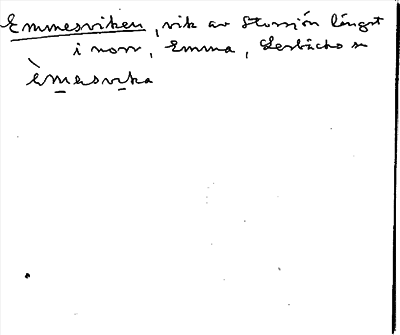 Emmesviken, vik av Storsjön längst
i norr, Emma, Lerbäcks sn
èmesvika